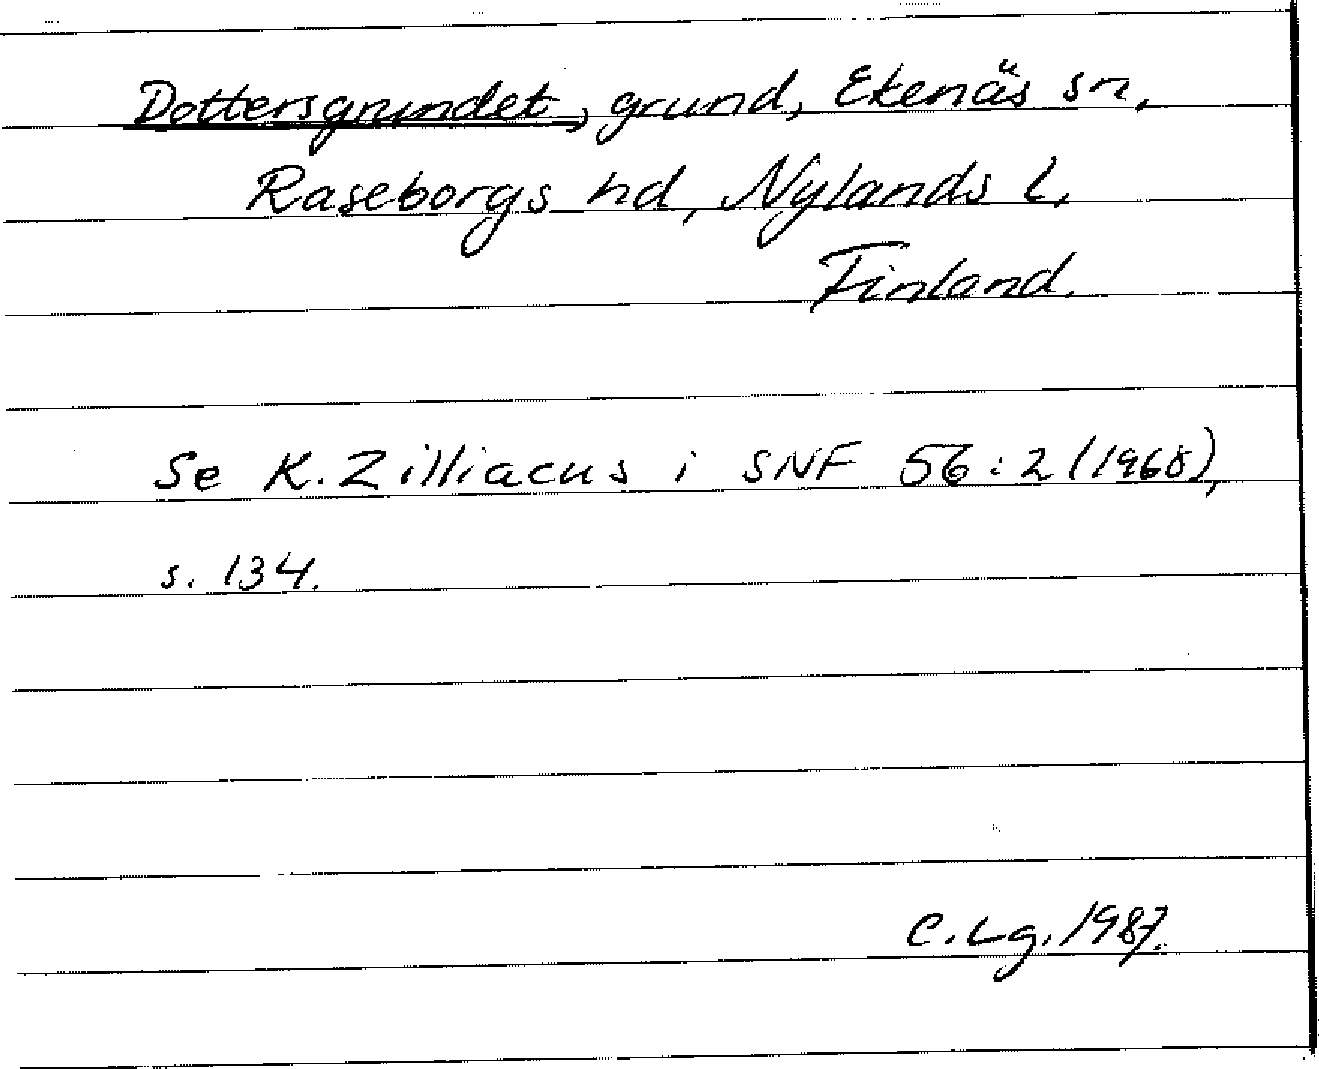 Dottersgrundet, grund, Ekenäs sn,
Raseborgs hd, Nylands l.
Finland.
Se K. Zilliacus i SNF 56:2 (1968),
s. 134.
C. Lg. 1987.